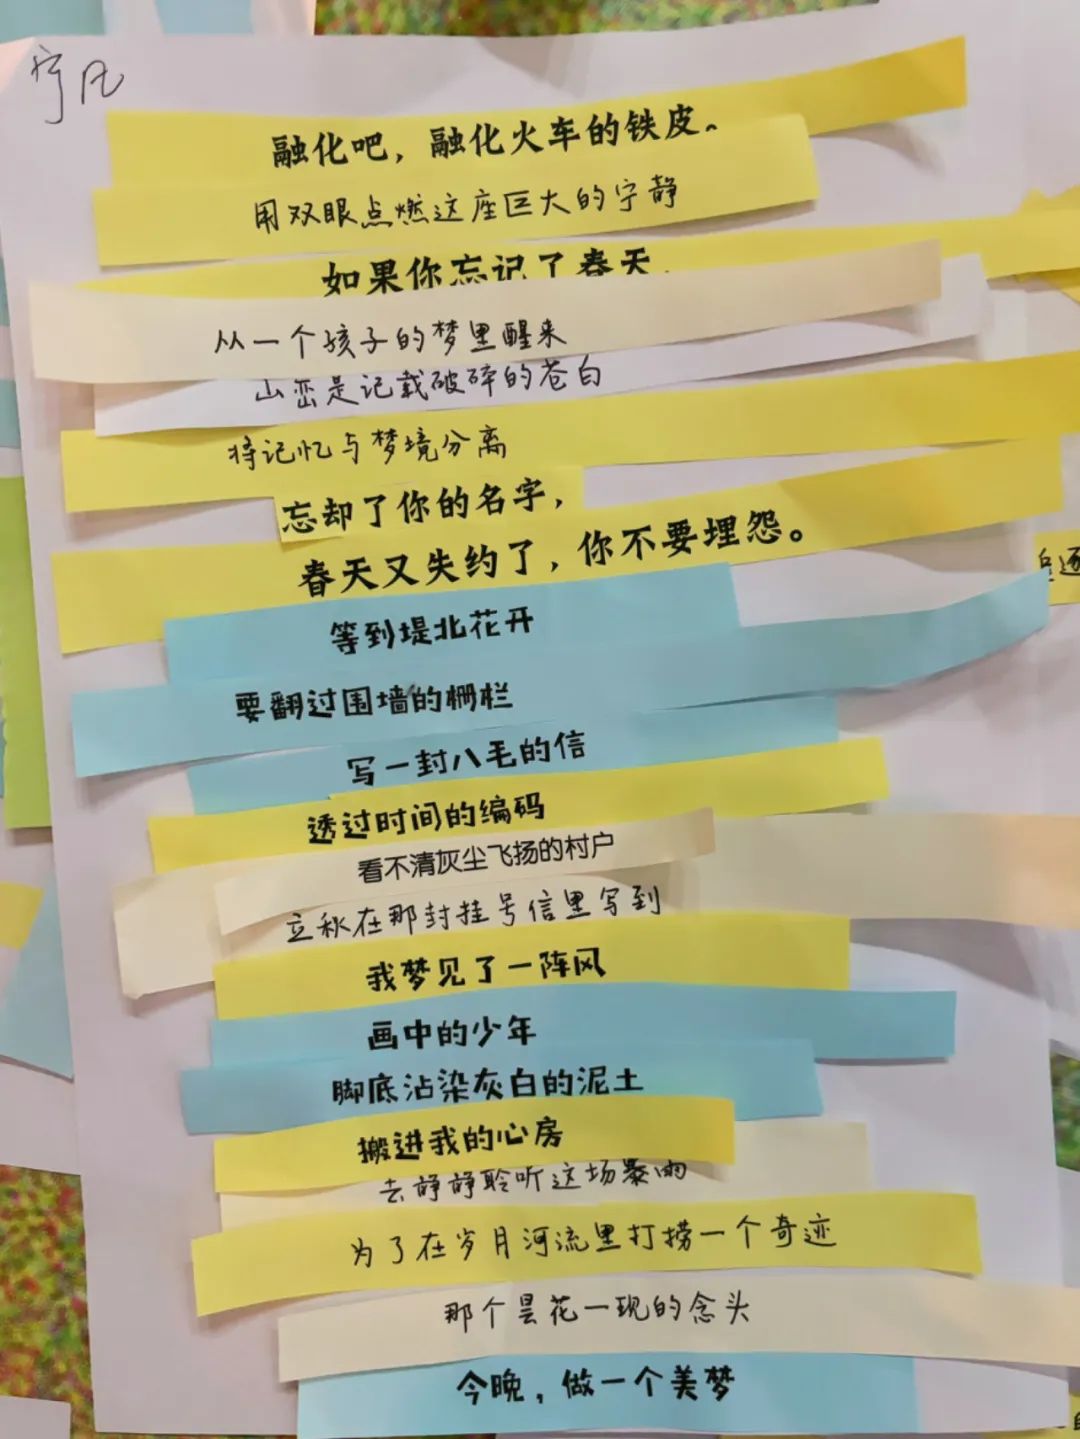 宁凡
融化吧，融化火车的铁皮、
用双眼点燃这座巨大的宁静
如果你忘记了春天
从一个孩子的梦里醒来
山峦是记载破碎的苍白
将记忆与梦境分离
忘却了你的名字，
春天又失约了，你不要埋怨。
等到堤北花开
要翻过围墙的栅栏
写一封八毛的信
透过时间的编码
看不清灰尘飞扬的村户
立秋在那封挂号信里写到
我梦见了一阵风
画中的少年
脚底沾染灰白的泥土
搬进我的心房
去静静聆听这场暴雨
为了在岁月河流里打捞一个奇迹
那个昙花一现的念头
今晚，做一个美梦